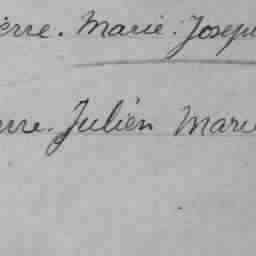 erre. Marie. Joseph
erre. Julien Marie